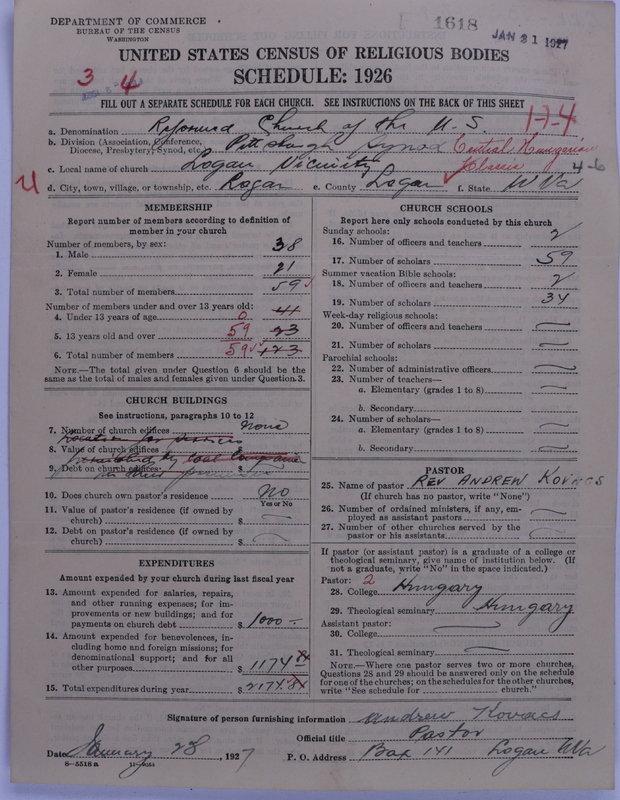 DEPARTMENT OF COMMERCE
BUREAU OF THE CENSUS
WASHINGTON
1618
JAN 21 1927
UNITED STATES CENSUS OF RELIGIOUS BODIES
SCHEDULE: 1926
3 4
FILL OUT A SEPARATE SCHEDULE FOR EACH CHURCH. SEE INSTRUCTIONS ON THE BACK OF THIS SHEET
1-7-4
a. Denomination Reformed Church of the U.S.
b. Division (Association, Conference, Diocese, Presbytery, Synod, etc.) Pittsburgh Synod Central Hungarian
4-6
c. Local name of church Logan Vicinity
d. City, town, village, or township, etc. Logan e. County Logan f. State W Va
MEMBERSHIP
Report number of members according to definition of
member in your church
Number of members, by sex:
1. Male 38
2. Female 21
3. Total number of members 59
Number of members under and over 13 years old:
4. Under 13 years of age 0
5. 13 years old and over 59 23
6. Total number of members 59 123
NOTE.—The total given under Question 6 should be
same as the total of males and females given under Question 3.
CHURCH BUILDINGS
See instructions, paragraphs 10 to 12
7. Number of church edifices none
8. Value of church edifices $
9. Debt on church edifices $
10. Does church own pastor's residence No
Yes or No
11. Value of pastor's residence (if owned by
church) $
12. Debt on pastor's residence (if owned by
church) $
EXPENDITURES
Amount expended by your church during last fiscal year
13. Amount expended for salaries, repairs,
and other running expenses; for im-
provements or new buildings; and for
payments on church debt $ 1000 –
14. Amount expended for benevolences, in-
cluding home and foreign missions; for
denominational support; and for all
other purposes $ 1174
15. Total expenditures during year $ 2174
CHURCH SCHOOLS
Report here only schools conducted by this church
Sunday schools:
16. Number of officers and teachers 2
17. Number of scholars 59
Summer vacation Bible schools:
18. Number of officers and teachers 2
19. Number of scholars 34
Week-day religious schools:
20. Number of officers and teachers
21. Number of scholars
Parochial schools:
22. Number of administrative officers
23. Number of teachers—
a. Elementary (grades 1 to 8)
b. Secondary
24. Number of scholars—
a. Elementary (grades 1 to 8)
b. Secondary
PASTOR
25. Name of pastor REV ANDREW KOVACS
(If church has no pastor, write "None")
26. Number of ordained ministers, if any, em-
ployed as assistant pastors
27. Number of other churches served by the
pastor or his assistants
If pastor (or assistant pastor) is a graduate of a college or
theological seminary, give name of institution below. (If
not a graduate, write "No" in the space indicated.)
Pastor: 2
28. College Hungary
29. Theological seminary Hungary
Assistant pastor:
30. College
31. Theological seminary
NOTE.—Where one pastor serves two or more churches,
Questions 28 and 29 should be answered only on the schedule
for one of the churches; on the schedules for the other churches,
write "See schedule for church."
Signature of person furnishing information Andrew Kovacs
Official title Pastor
Date January 28, 1927 P. O. Address Box 141 Logan W Va
8-5518a